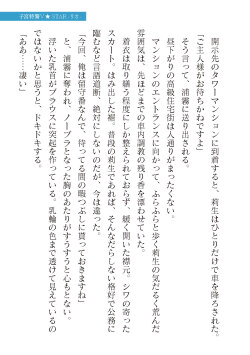 開示先のタワーマンションに到着すると、莉生はひとりだけで車をおろされた。
「ご主人様がお待ちかねですよ」
そう言って、浦霧に送り出される。
昼下がりの高級住宅街は人通りがまったくない。
マンションのエントランスに向かって、ふらふらと歩く莉生の気だるく荒んだ
雰囲気は、先ほどまでの車内調教の残り香を漂わせていた。
着衣は取り繕う程度にしか整えられておらず、緩く開いた襟元。シワの寄った
スカート。はみ出した裾。普段の莉生であれば、そんなだらしない格好で公務に
臨むなど言語道断、絶対にしないのだが、今は違った。
「今回、俺は留守番なんで、待ってる間の暇つぶしに貰っておきますね」
と、浦霧に奪われ、ノーブラとなった胸のあたりがすうすうと心もとない。
浮いた乳首がブラウスに突起を作っている。乳輪の色まで透けて見えているの
ではないかと思うと、ドキドキする。
「ああ……凄い」